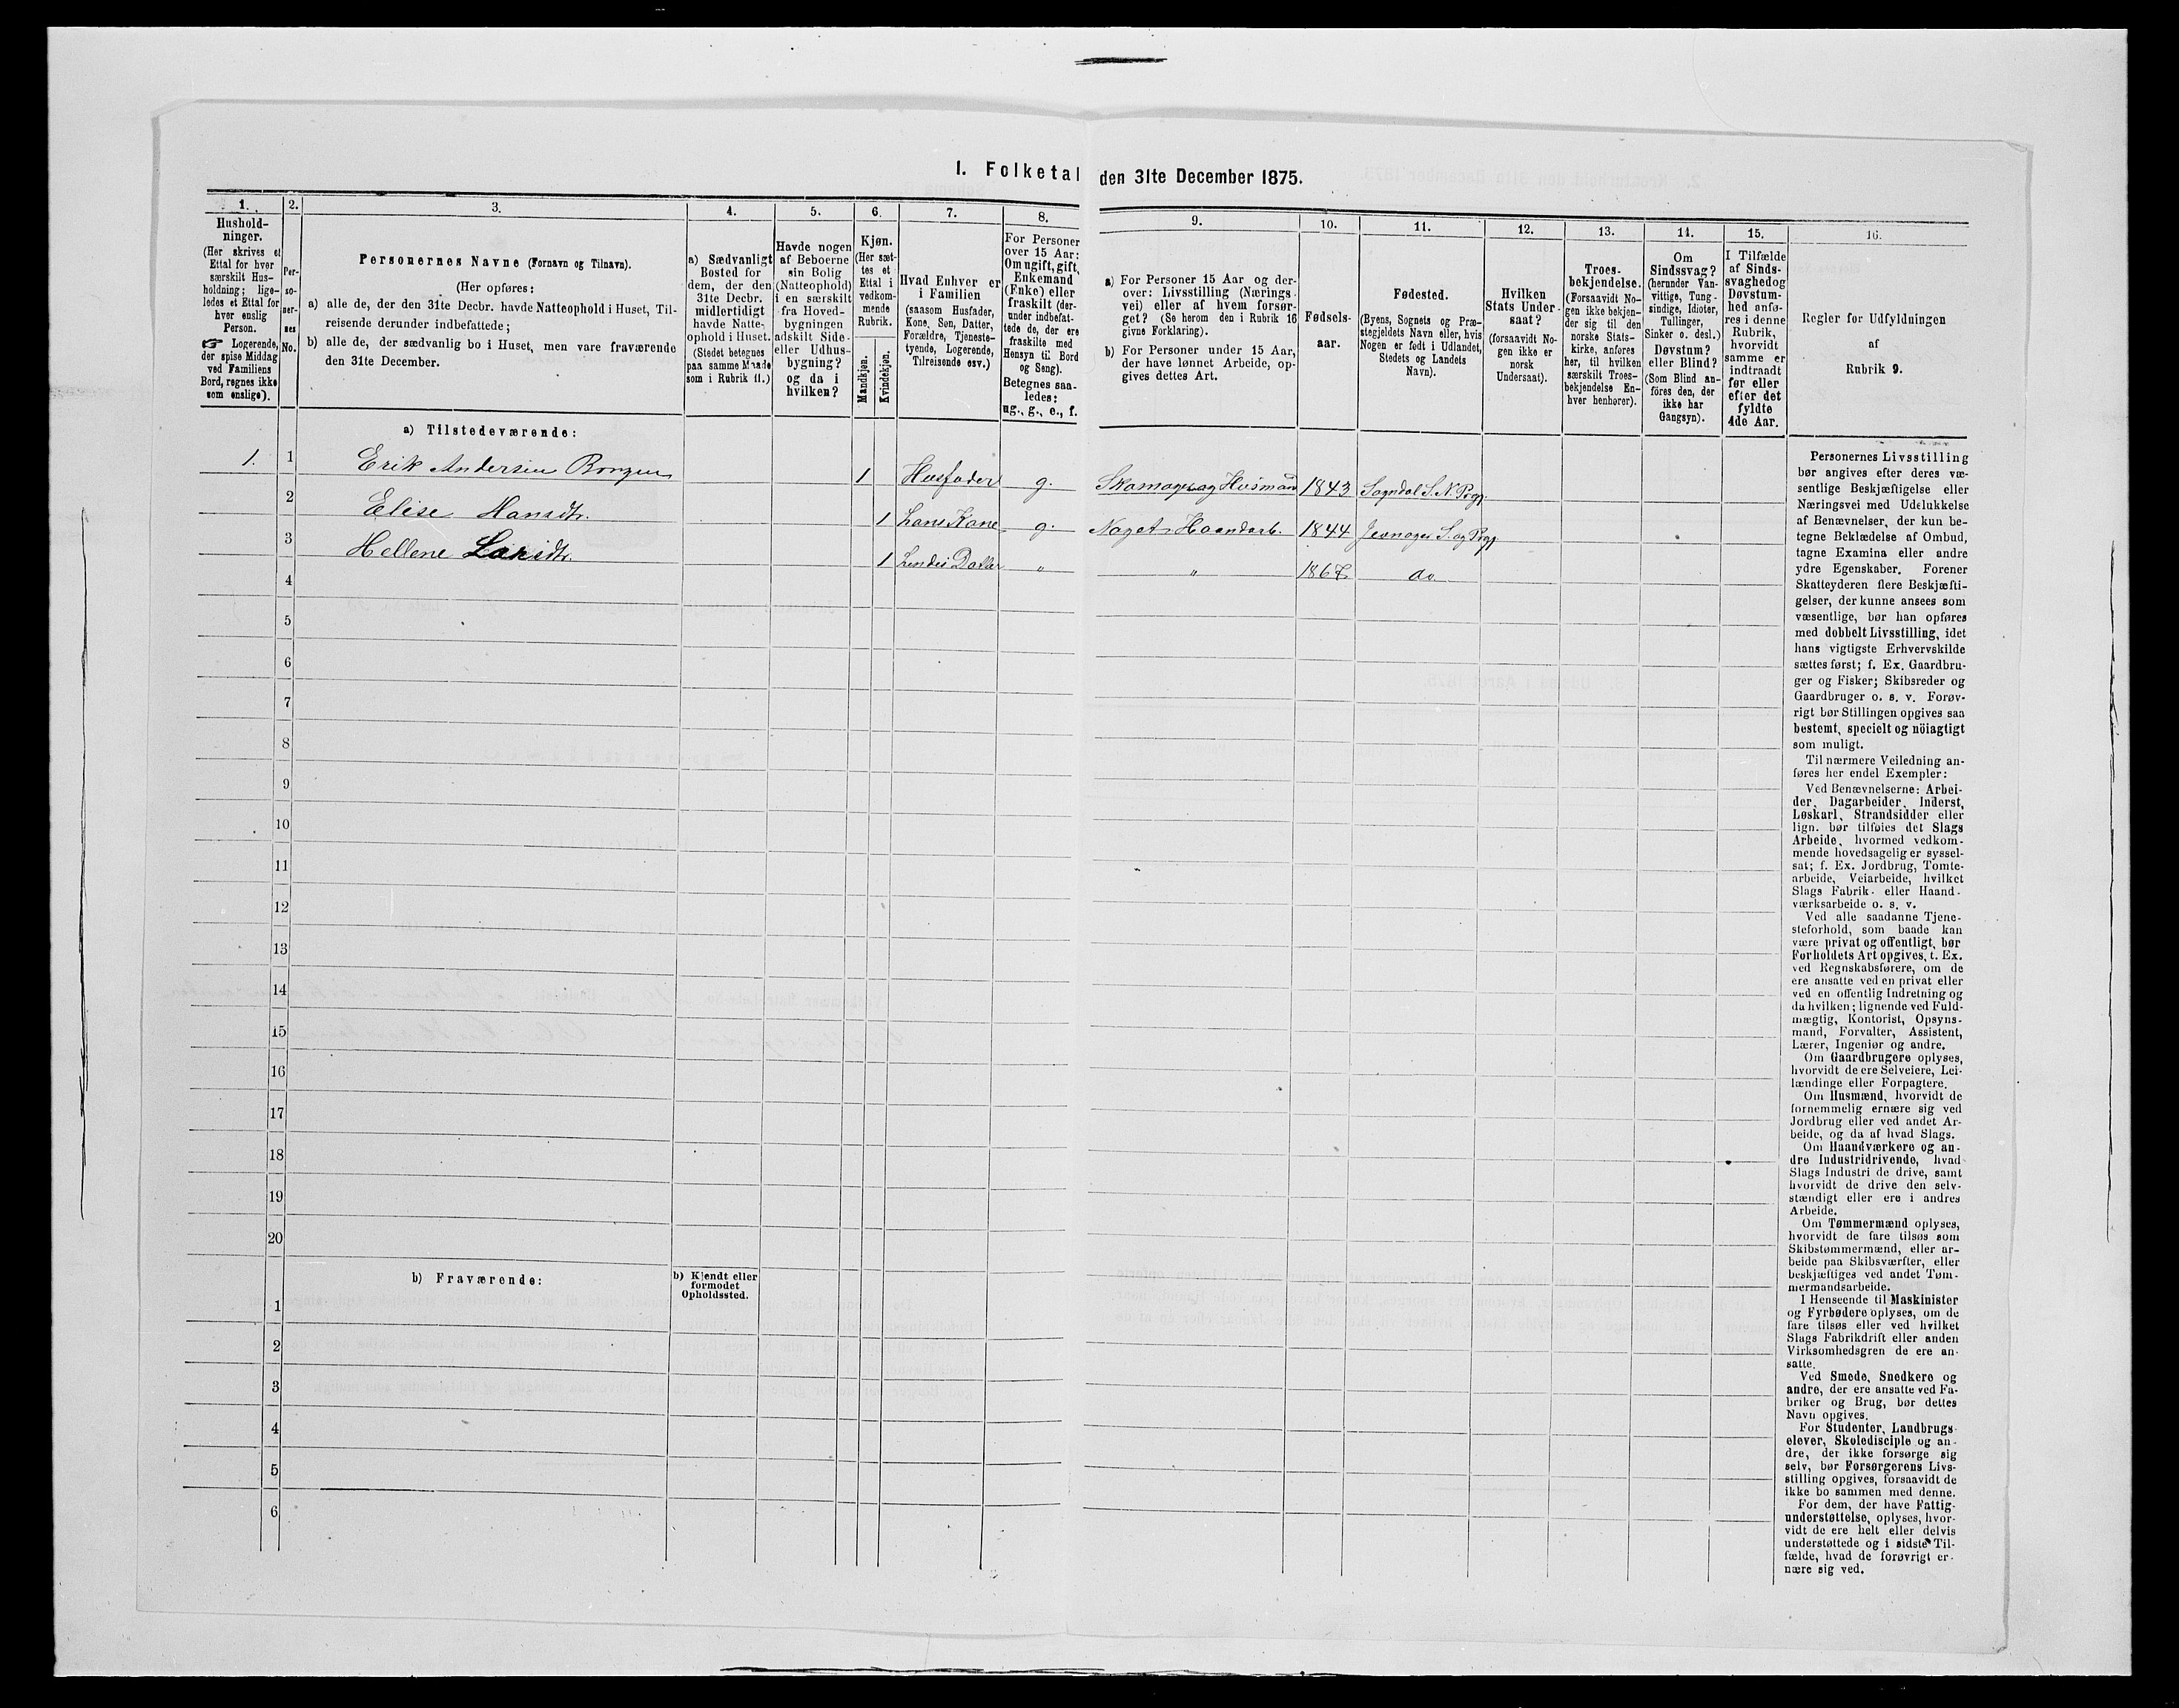 I. Folketal den 31te December 1875.
1.
Hushold-
ninger.
(Her skrives et
Ettal for hver
særskilt Hus-
holdning; lige-
ledes et Ettal for
hver enslig
Person.
☞ Logerende,
der spise Middag
ved Familiens
Bord, regnes ikke
som enslige).
2.
Per-
so-
ner-
nes
No.
3.
Personernes Navne (Fornavn og Tilnavn).
(Her opføres:
a) alle de, der den 31te Decbr. havde Natteophold i Huset, Til-
reisende derunder indbefattede;
b) alle de, der sædvanlig bo i Huset, men vare fraværende
den 31te December.
4.
a) Sædvanligt
Bosted for
dem, der den
31te Decbr.
midlertidigt
havde Natte-
ophold i Huset.
(Stedet betegnes
paa samme Maade
som i Rubrik 11.)
5.
Havde nogen
af Beboerne
sin Bolig
(Natteophold)
i en særskilt
fra Hoved-
bygningen
adskilt Side-
eller Udhus-
bygning?
og da i
hvilken?
6.
Kjøn.
(Her sæt-
tes et
Ettal i
vedkom-
mende
Rubrik.
Mandkjøn.
Kvindekjøn.
7.
Hvad Enhver er
i Familien
(saasom Husfader,
Kone, Søn, Datter,
Forældre, Tjeneste-
tyende, Logerende,
Tilreisende osv.)
8.
For Personer
over 15 Aar:
Om ugift, gift,
Enkemand
(Enke) eller
fraskilt (der-
under indbefat-
tede de, der ere
fraskilte med
Hensyn til Bord
og Seng).
Betegnes saa-
ledes:
ug., g., e., f.
9.
a) For Personer 15 Aar og der-
over: Livsstilling (Nærings-
vei) eller af hvem forsør-
get? (Se herom den i Rubrik 16
givne Forklaring).
b) For Personer under 15 Aar,
der have lønnet Arbeide, op-
gives dettes Art.
10.
Fødsels-
aar.
11.
Fødested.
(Byens, Sognets og Præ-
stegjeldets Navn eller, hvis
Nogen er født i Udlandet,
Stedets og Landets
Navn).
12.
Hvilken
Stats Under-
saat?
(forsaavidt No-
gen ikke er
norsk
Undersaat).
13.
Troes-
bekjendelse.
(Forsaavidt No-
gen ikke bekjen-
der sig til den
norske Stats-
kirke, anføres
her, til hvilken
særskilt Troes-
bekjendelse En-
hver henhører).
14.
Om
Sindssvag?
(herunder Van-
vittige, Tung-
sindige, Idioter,
Tullinger,
Sinker o. desl.)
Døvstum?
eller Blind?
(Som Blind an-
føres den, der
ikke har
Gangsyn).
15.
I Tilfælde
af Sinds-
svaghed og
Døvstum-
hed anfø-
res i denne
Rubrik,
hvorvidt
samme er
indtraadt
før eller
efter det
fyldte
4de Aar.
16.
Regler for Udfyldningen
af
Rubrik 9.
a) Tilstedeværende:
1. 1 Erik Andersen 1 Husfader g. Husmand 1843 Sogndal S. N. Pgj.
2 Elise Hansdtr. 1 Hans Kone g. Noget Haandarb. 1844 Jevnager S. og Pgj.
3 Hellene Larsdtr. 1 Datter „ „ 1867 do
4
5
6
7
8
9
10
11
12
13
14
15
16
17
18
19
20
b) Fraværende:
b) Kjendt eller
formodet
Opholdssted.
1
2
3
4
5
6
Personernes Livsstilling
bør angives efter deres væ-
sentlige Beskjæftigelse eller
Næringsvei med Udelukkelse
af Benævnelser, der kun be-
tegne Beklædelse af Ombud,
tagne Examina eller andre
ydre Egenskaber. Forener
Skatteyderen flere Beskjæfti-
gelser, der kunne ansees som
væsentlige, bør han opføres
med dobbelt Livsstilling, idet
hans vigtigste Erhvervskilde
sættes først; f. Ex. Gaardbru-
ger og Fisker; Skibsreder og
Gaardbruger o. s. v. Forøv-
rigt bør Stillingen opgives saa
bestemt, specielt og nöiagtigt
som muligt.
Til nærmere Veiledning an-
føres her endel Exempler:
Ved Benævnelserne: Arbei-
der, Dagarbeider, Inderst,
Løskarl, Strandsidder eller
lign. bør tilføies det Slags
Arbeide, hvormed vedkom-
mende hovedsagelig er syssel-
sat; f. Ex. Jordbrug, Tomte-
arbeide, Veiarbeide, hvilket
Slags Fabrik- eller Haand-
værksarbeide o. s. v.
Ved alle saadanne Tjene-
steforhold, som baade kan
være privat og offentligt, bør
Forholdets Art opgives, t. Ex.
ved Regnskabsførere, om de
ere ansatte ved en privat eller
ved en offentlig Indretning og
da hvilken; lignende ved Fuld-
mægtig, Kontorist, Opsyns-
mand, Forvalter, Assistent,
Lærer, Ingeniør og andre.
Om Gaardbrugere oplyses,
hvorvidt de ere Selveiere, Lei-
lændinge eller Forpagtere.
Om Husmænd, hvorvidt de
fornemmelig ernære sig ved
Jordbrug eller ved andet Ar-
beide, og da af hvad Slags.
Om Haandværkere og an-
dre Industridrivende, hvad
Slags Industri de drive, samt
hvorvidt de drive den selv-
stændigt eller ere i andres
Arbeide.
Om Tømmermænd oplyses,
hvorvidt de fare tilsøs som
Skibstømmermænd, eller ar-
beide paa Skibsværfter, eller
beskjæftiges ved andet Tøm-
mermandsarbeide.
I Henseende til Maskinister
og Fyrbødere oplyses, om de
fare tilsøs eller ved hvilket
Slags Fabrikdrift eller anden
Virksomhedsgren de ere an-
satte.
Ved Smede, Snedkere og
andre, der ere ansatte ved Fa-
briker og Brug, bør dettes
Navn opgives.
For Studenter, Landbrugs-
elever, Skoledisciple og an-
dre, der ikke forsørge sig
selv, bør Forsørgerens Livs-
stilling opgives, forsaavidt de
ikke bo sammen med denne.
For dem, der have Fattig-
understøttelse, oplyses, hvor-
vidt de ere helt eller delvis
understøttede og i sidste Til-
fælde, hvad de forøvrigt er-
nære sig ved.